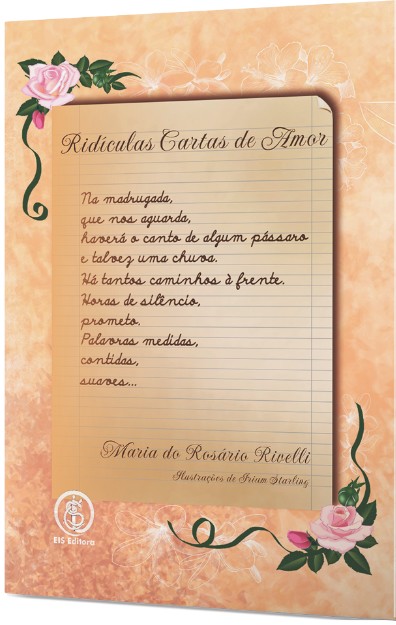 Ridículas Cartas de Amor
Na madrugada,
que nos aguarda,
haverá o canto de algum pássaro
e talvez uma chuva.
Há tantos caminhos à frente.
Horas de silêncio,
prometo.
Palavras medidas,
contidas,
suaves...
Maria do Rosário Rivelli
Ilustrações de Iriam Starling
EIS Editora